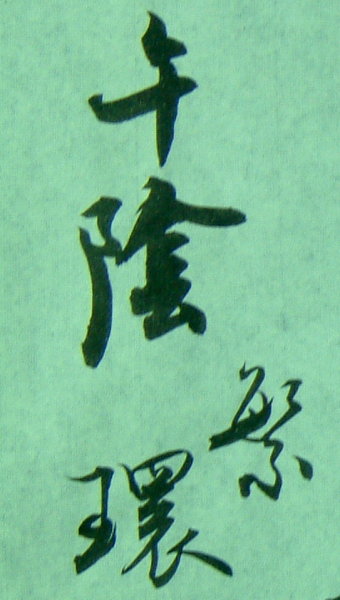 午陰
繁
環